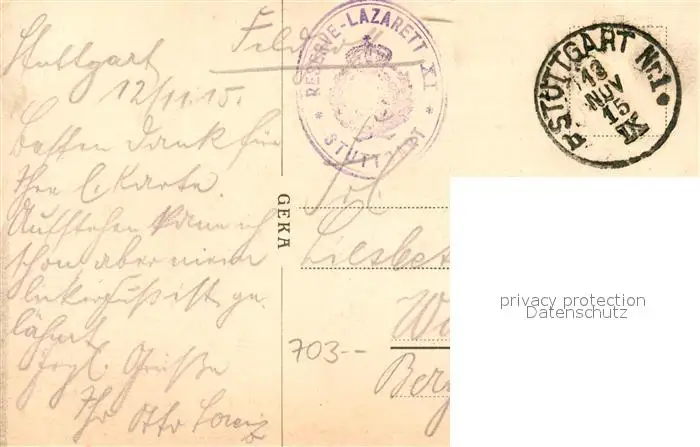 Stuttgart
12/11.15.
Besten Dank für
Ihre l. Karte.
Aufstehen kann ich
schon, aber mein
linker Fuß ist ge-
lähmt.
Frgl. Grüße
Ihr Otto Lorenz
GEKA
RESERVE-LAZARETT XI
STUTTGART
STUTTGART Nr.1
13
NOV
15
Frl.
Liesbet
703--
Berg
privacy protection
Datenschutz